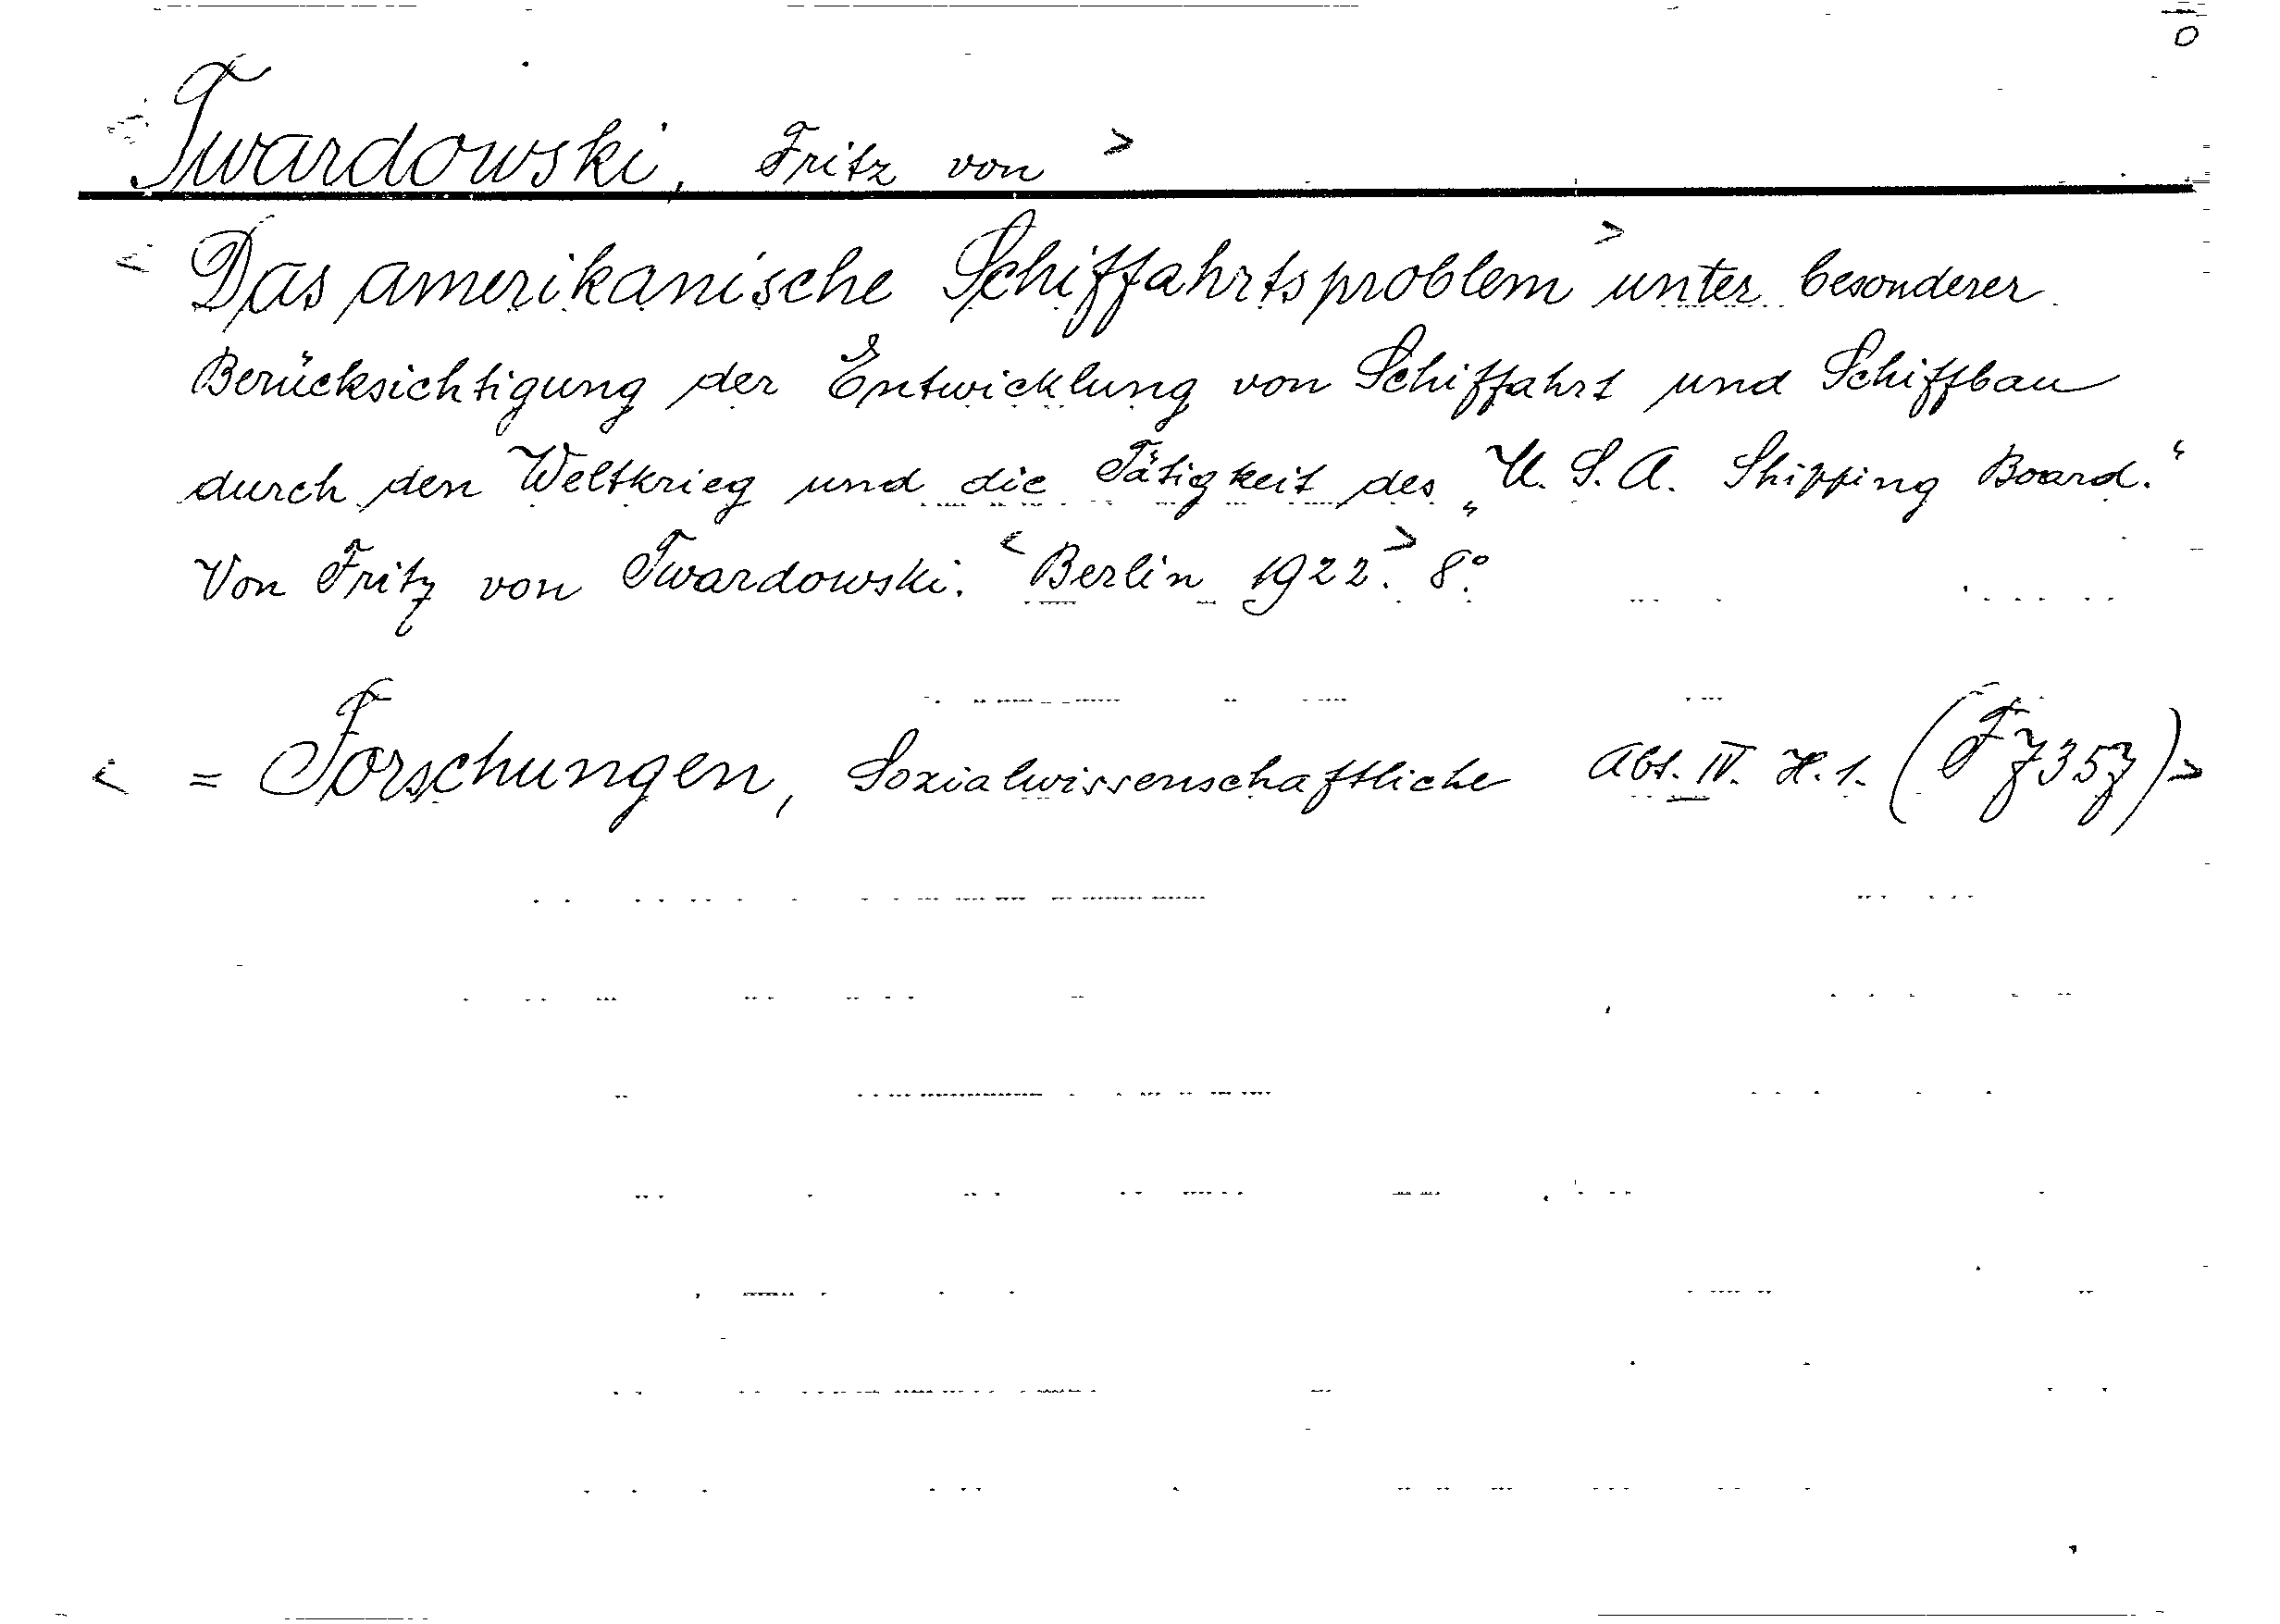 < Twardowski, Fritz von >
< Das amerikanische Schiffahrtsproblem > unter besonderer
Berücksichtigung der Entwicklung von Schiffahrt und Schiffbau
durch den Weltkrieg und die Tätigkeit des „U. S. A. Shipping Board.“
Von Fritz von Twardowski. < Berlin 1922. > 8°.
< = Forschungen, Sozialwissenschaftliche Abt. IV. H. 1. (F 7357) >